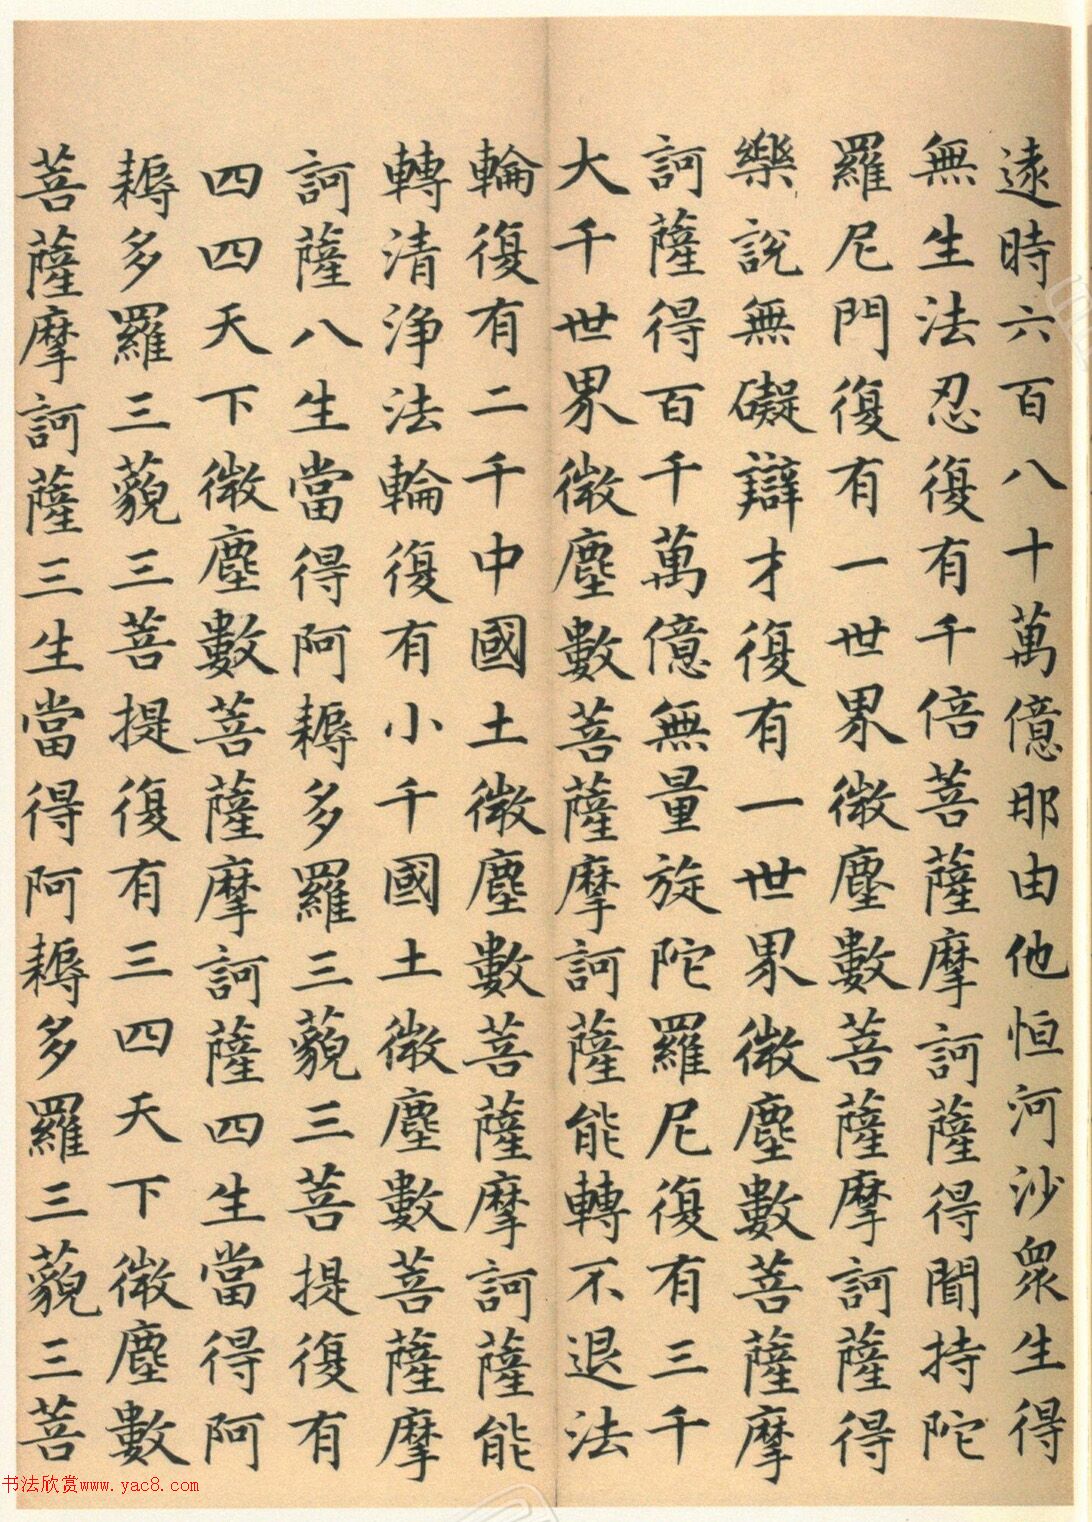 逺時六百八十萬億那由他恒河沙衆生得
無生法忍復有千倍菩薩摩訶薩得聞持陀
羅尼門復有一世界微塵數菩薩摩訶薩得
樂說無礙辯才復有一世界微塵數菩薩摩
訶薩得百千萬億無量旋陀羅尼復有三千
大千世界微塵數菩薩摩訶薩能轉不退法
輪復有二千中國土微塵數菩薩摩訶薩能
轉清淨法輪復有小千國土微塵數菩薩摩
訶薩八生當得阿耨多羅三藐三菩提復有
四四天下微塵數菩薩摩訶薩四生當得阿
耨多羅三藐三菩提復有三四天下微塵數
菩薩摩訶薩三生當得阿耨多羅三藐三菩
书法欣赏www.yac8.com